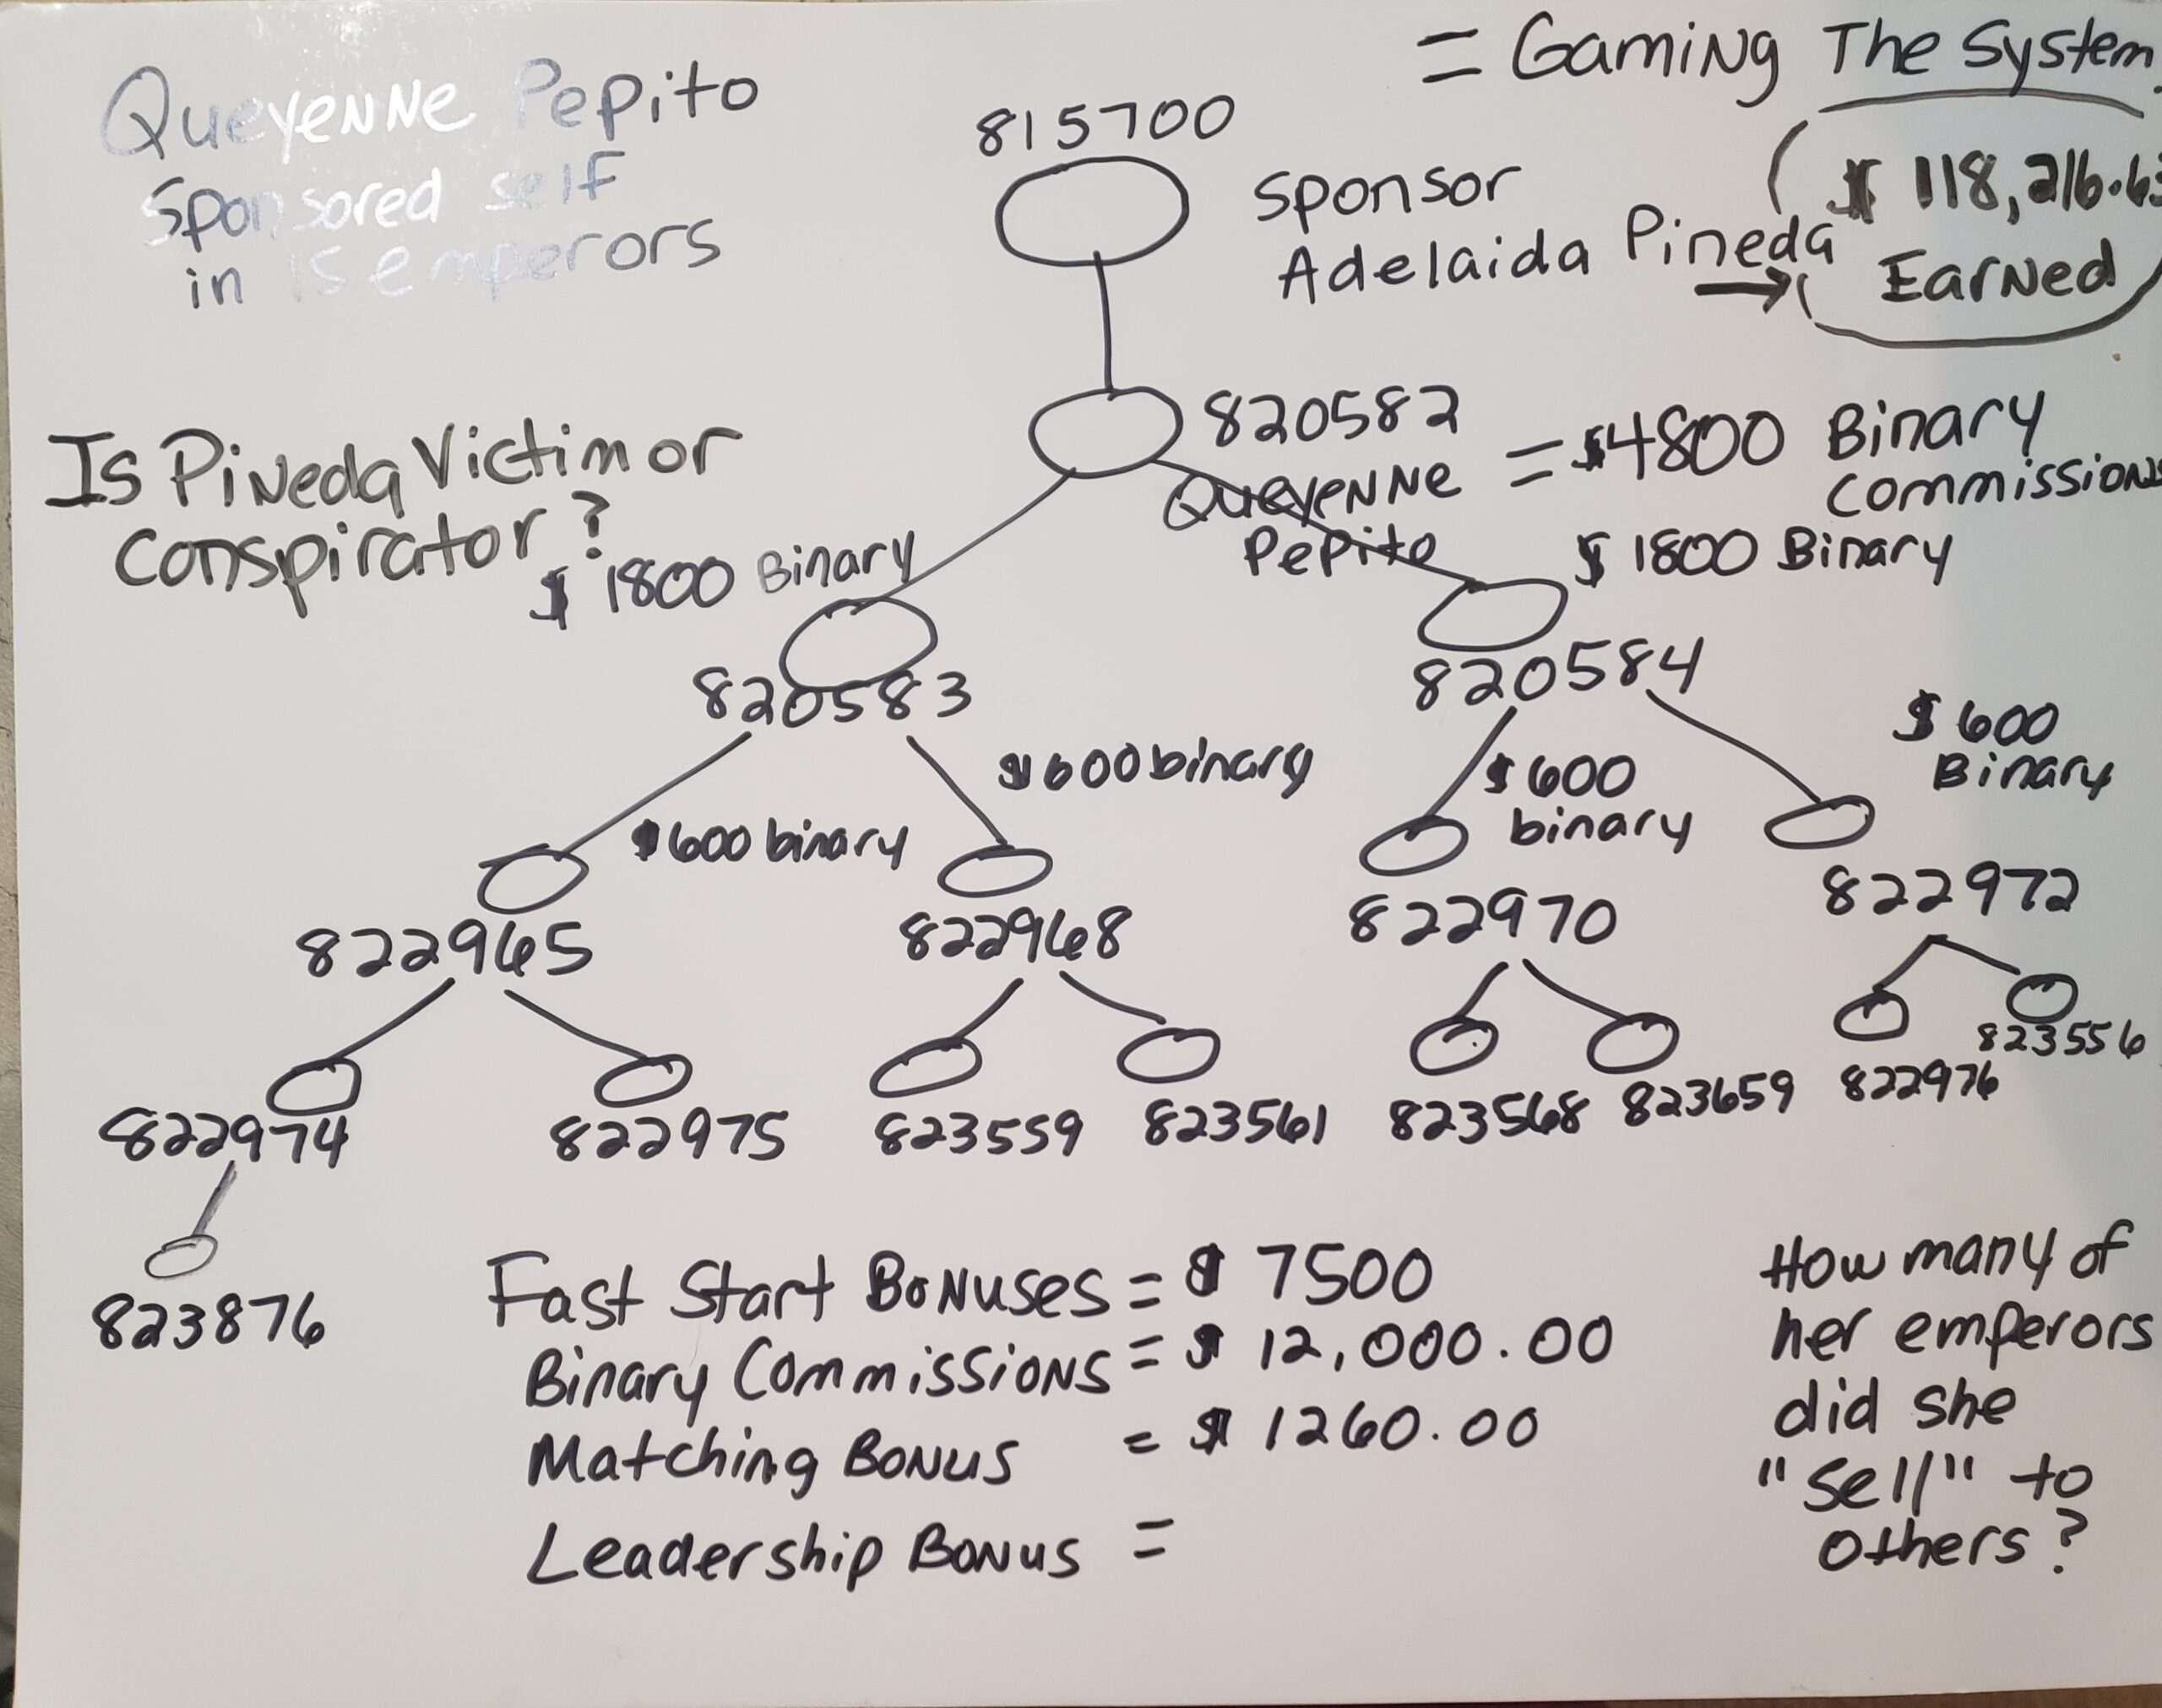 Queyenne Pepito
Sponsored self
in 15 emperors
= Gaming The System
815700
Sponsor
Adelaida Pineda
$ 118,216.63
Earned
Is Pineda Victim or
Conspirator?
820582
Queyenne
Pepito
= $4800 Binary
Commissions
$ 1800 Binary
$ 1800 Binary
820583
820584
$600 binary
$600 binary
$600
binary
$600
Binary
822965
822968
822970
822972
822974
822975
823559
823561
823568
823659
822976
823556
823876
Fast Start Bonuses = $ 7500
Binary Commissions = $ 12,000.00
Matching Bonus = $ 1260.00
Leadership Bonus =
How many of
her emperors
did she
"sell" to
others?